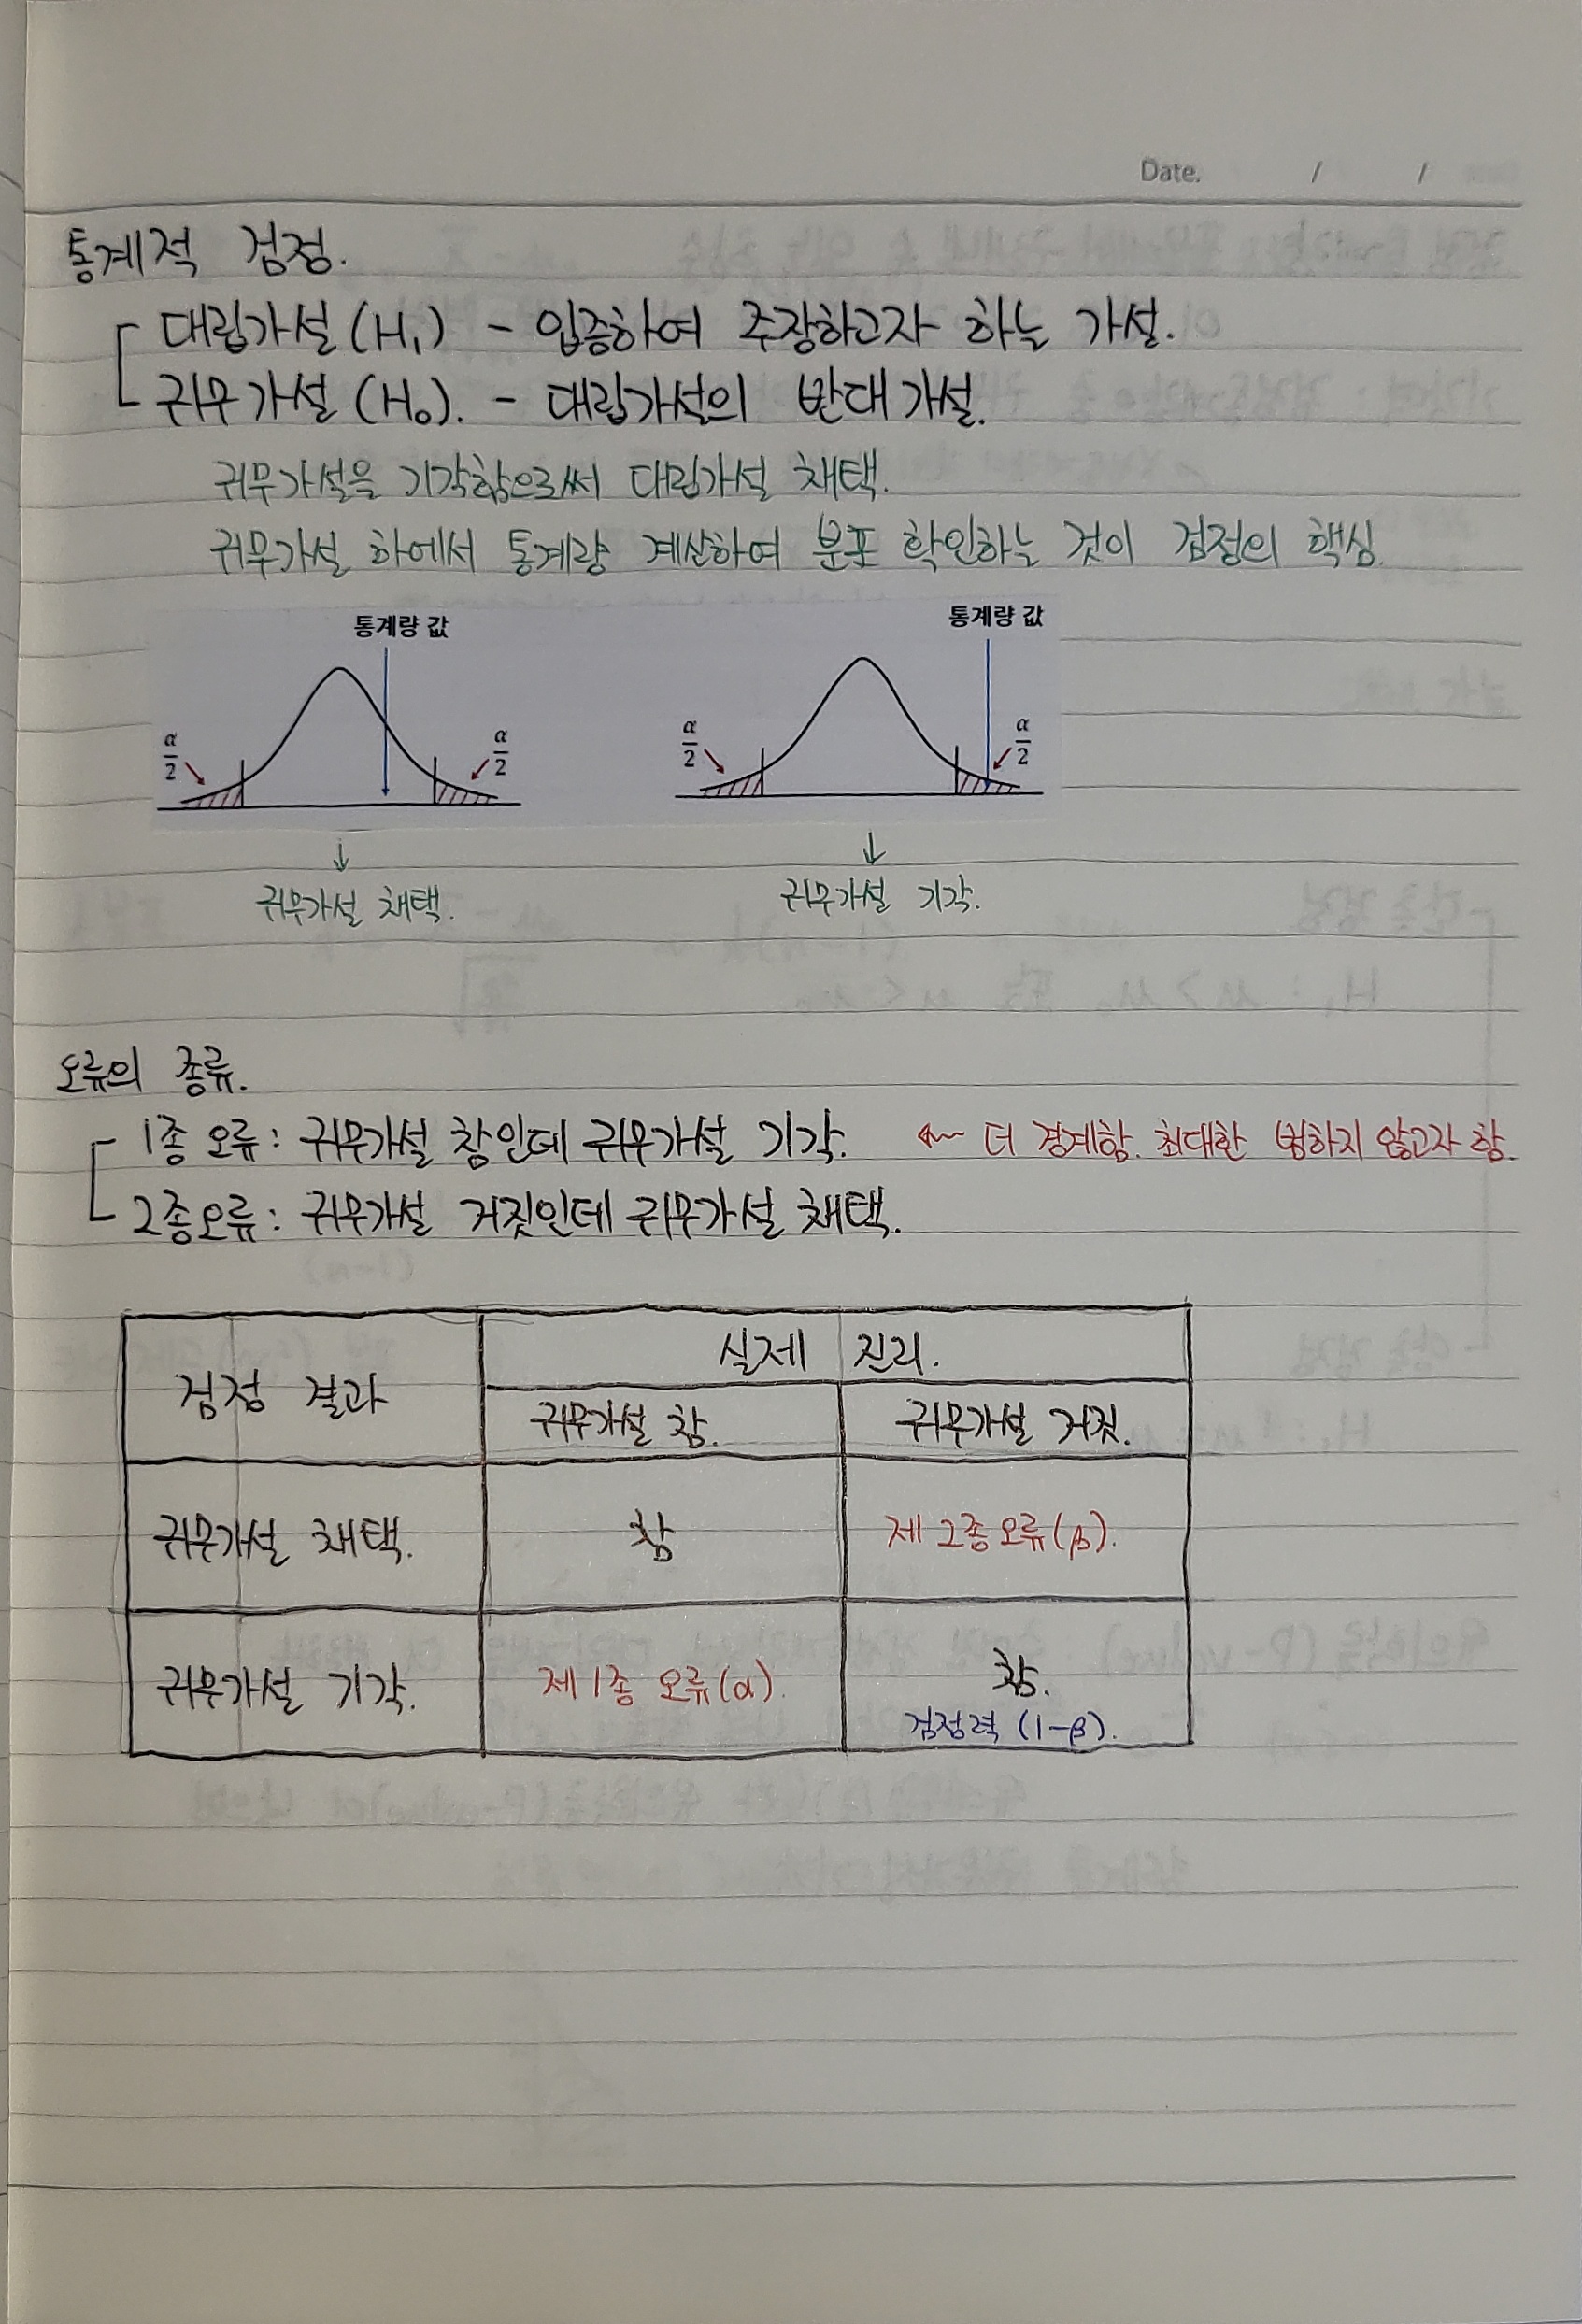 Date. / /
통계적 검정.
대립가설(H₁) - 입증하여 주장하고자 하는 가설.
귀무가설(H₀). - 대립가설의 반대 가설.
귀무가설을 기각함으로써 대립가설 채택.
귀무가설 하에서 통계량 계산하여 분포 확인하는 것이 검정의 핵심.
통계량 값 통계량 값
α/2 α/2 α/2 α/2
↓ ↓
귀무가설 채택. 귀무가설 기각.
오류의 종류.
1종 오류: 귀무가설 참인데 귀무가설 기각. ← 더 경계함. 최대한 범하지 않고자 함.
2종오류: 귀무가설 거짓인데 귀무가설 채택.
검정 결과 실제 진리.
귀무가설 참. 귀무가설 거짓.
귀무가설 채택. 참 제 2종오류(β).
귀무가설 기각. 제 1종 오류(α). 참.
검정력 (1-β).